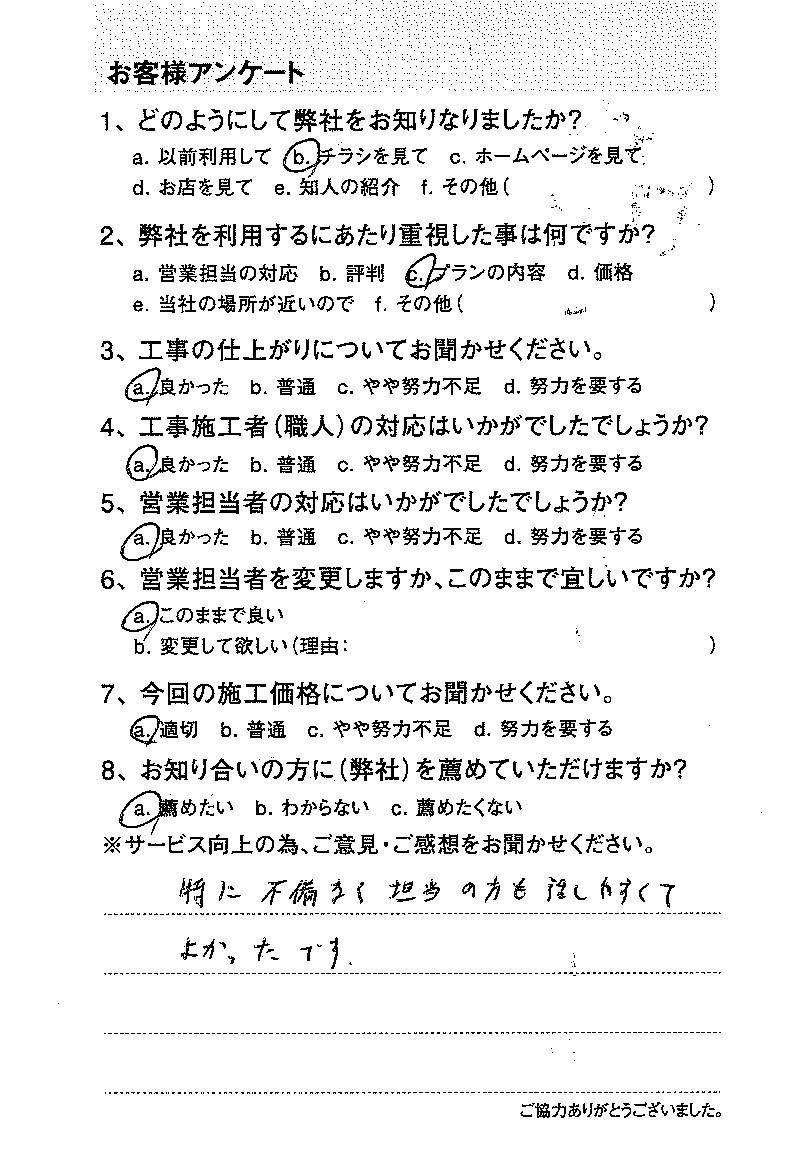 お客様アンケート
1、どのようにして弊社をお知りなりましたか?
a. 以前利用して b. チラシを見て c. ホームページを見て
d. お店を見て e. 知人の紹介 f. その他( )
2、弊社を利用するにあたり重視した事は何ですか?
a. 営業担当の対応 b. 評判 c. プランの内容 d. 価格
e. 当社の場所が近いので f. その他( )
3、工事の仕上がりについてお聞かせください。
a. 良かった b. 普通 c. やや努力不足 d. 努力を要する
4、工事施工者(職人)の対応はいかがでしたでしょうか?
a. 良かった b. 普通 c. やや努力不足 d. 努力を要する
5、営業担当者の対応はいかがでしたでしょうか?
a. 良かった b. 普通 c. やや努力不足 d. 努力を要する
6、営業担当者を変更しますか、このままで宜しいですか?
a. このままで良い
b. 変更して欲しい(理由: )
7、今回の施工価格についてお聞かせください。
a. 適切 b. 普通 c. やや努力不足 d. 努力を要する
8、お知り合いの方に(弊社)を薦めていただけますか?
a. 薦めたい b. わからない c. 薦めたくない
※サービス向上の為、ご意見・ご感想をお聞かせください。
特に不備なく担当の方も話しやすくて
よかったです。
ご協力ありがとうございました。